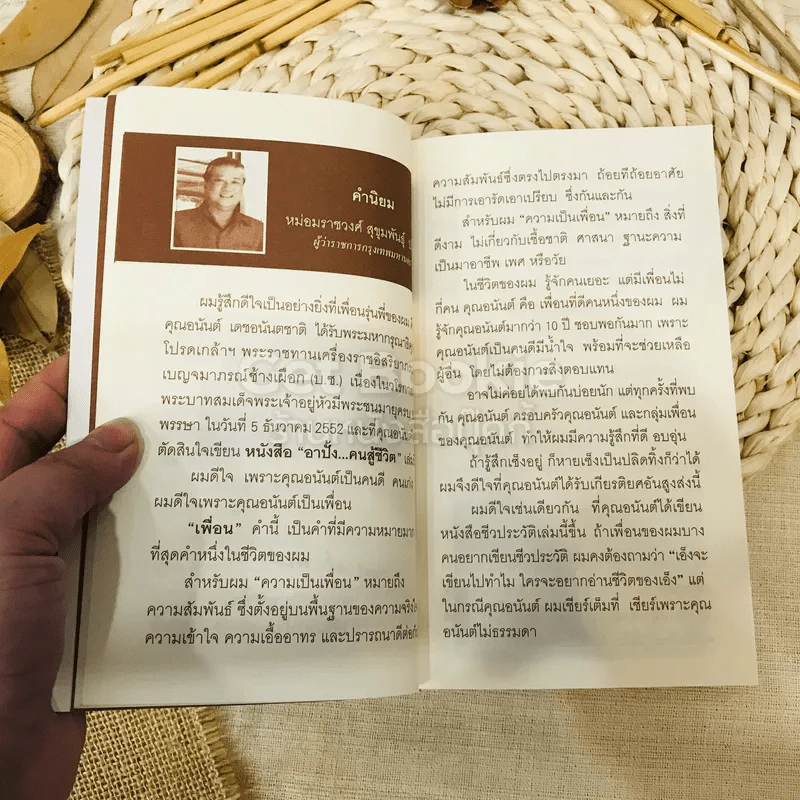 คำนิยม
หม่อมราชวงศ์ สุขุมพันธุ์
ผู้ว่าราชการกรุงเทพมหานคร
ผมรู้สึกดีใจเป็นอย่างยิ่งที่เพื่อนรุ่นพี่ของผม
คุณอนันต์ เดชอนันตชาติ ได้รับพระมหากรุณาธิคุณ
โปรดเกล้าฯ พระราชทานเครื่องราชอิสริยาภรณ์
เบญจมาภรณ์ช้างเผือก (บ.ช.) เนื่องในวโรกาส
พระบาทสมเด็จพระเจ้าอยู่หัวมีพระชนมายุครบ
พรรษา ในวันที่ 5 ธันวาคม 2552 และที่คุณอนันต์
ตัดสินใจเขียน หนังสือ “อาปั๊ง...คนสู้ชีวิต”
ผมดีใจ เพราะคุณอนันต์เป็นคนดี คนเก่ง
ผมดีใจเพราะคุณอนันต์เป็นเพื่อน
“เพื่อน” คำนี้ เป็นคำที่มีความหมายมาก
ที่สุดคำหนึ่งในชีวิตของผม
สำหรับผม “ความเป็นเพื่อน” หมายถึง
ความสัมพันธ์ ซึ่งตั้งอยู่บนพื้นฐานของความจริงใจ
ความเข้าใจ ความเอื้ออาทร และปรารถนาดีต่อกัน
ความสัมพันธ์ซึ่งตรงไปตรงมา ถ้อยทีถ้อยอาศัย
ไม่มีการเอารัดเอาเปรียบ ซึ่งกันและกัน
สำหรับผม “ความเป็นเพื่อน” หมายถึง สิ่งที่
ดีงาม ไม่เกี่ยวกับเชื้อชาติ ศาสนา ฐานะความ
เป็นมาอาชีพ เพศ หรือวัย
ในชีวิตของผม รู้จักคนเยอะ แต่มีเพื่อนไม่
กี่คน คุณอนันต์ คือ เพื่อนที่ดีคนหนึ่งของผม ผม
รู้จักคุณอนันต์มากว่า 10 ปี ชอบพอกันมาก เพราะ
คุณอนันต์เป็นคนดีมีน้ำใจ พร้อมที่จะช่วยเหลือ
ผู้อื่น โดยไม่ต้องการสิ่งตอบแทน
อาจไม่ค่อยได้พบกันบ่อยนัก แต่ทุกครั้งที่พบ
กัน คุณอนันต์ ครอบครัวคุณอนันต์ และกลุ่มเพื่อน
ของคุณอนันต์ ทำให้ผมมีความรู้สึกที่ดี อบอุ่น
ถ้ารู้สึกเซ็งอยู่ ก็หายเซ็งเป็นปลิดทิ้งก็ว่าได้
ผมจึงดีใจที่คุณอนันต์ได้รับเกียรติยศอันสูงส่งนี้
ผมดีใจเช่นเดียวกัน ที่คุณอนันต์ได้เขียน
หนังสือชีวประวัติเล่มนี้ขึ้น ถ้าเพื่อนของผมบาง
คนอยากเขียนชีวประวัติ ผมคงต้องถามว่า “เอ็งจะ
เขียนไปทำไม ใครจะอยากอ่านชีวิตของเอ็ง” แต่
ในกรณีคุณอนันต์ ผมเชียร์เต็มที่ เชียร์เพราะคุณ
อนันต์ไม่ธรรมดา